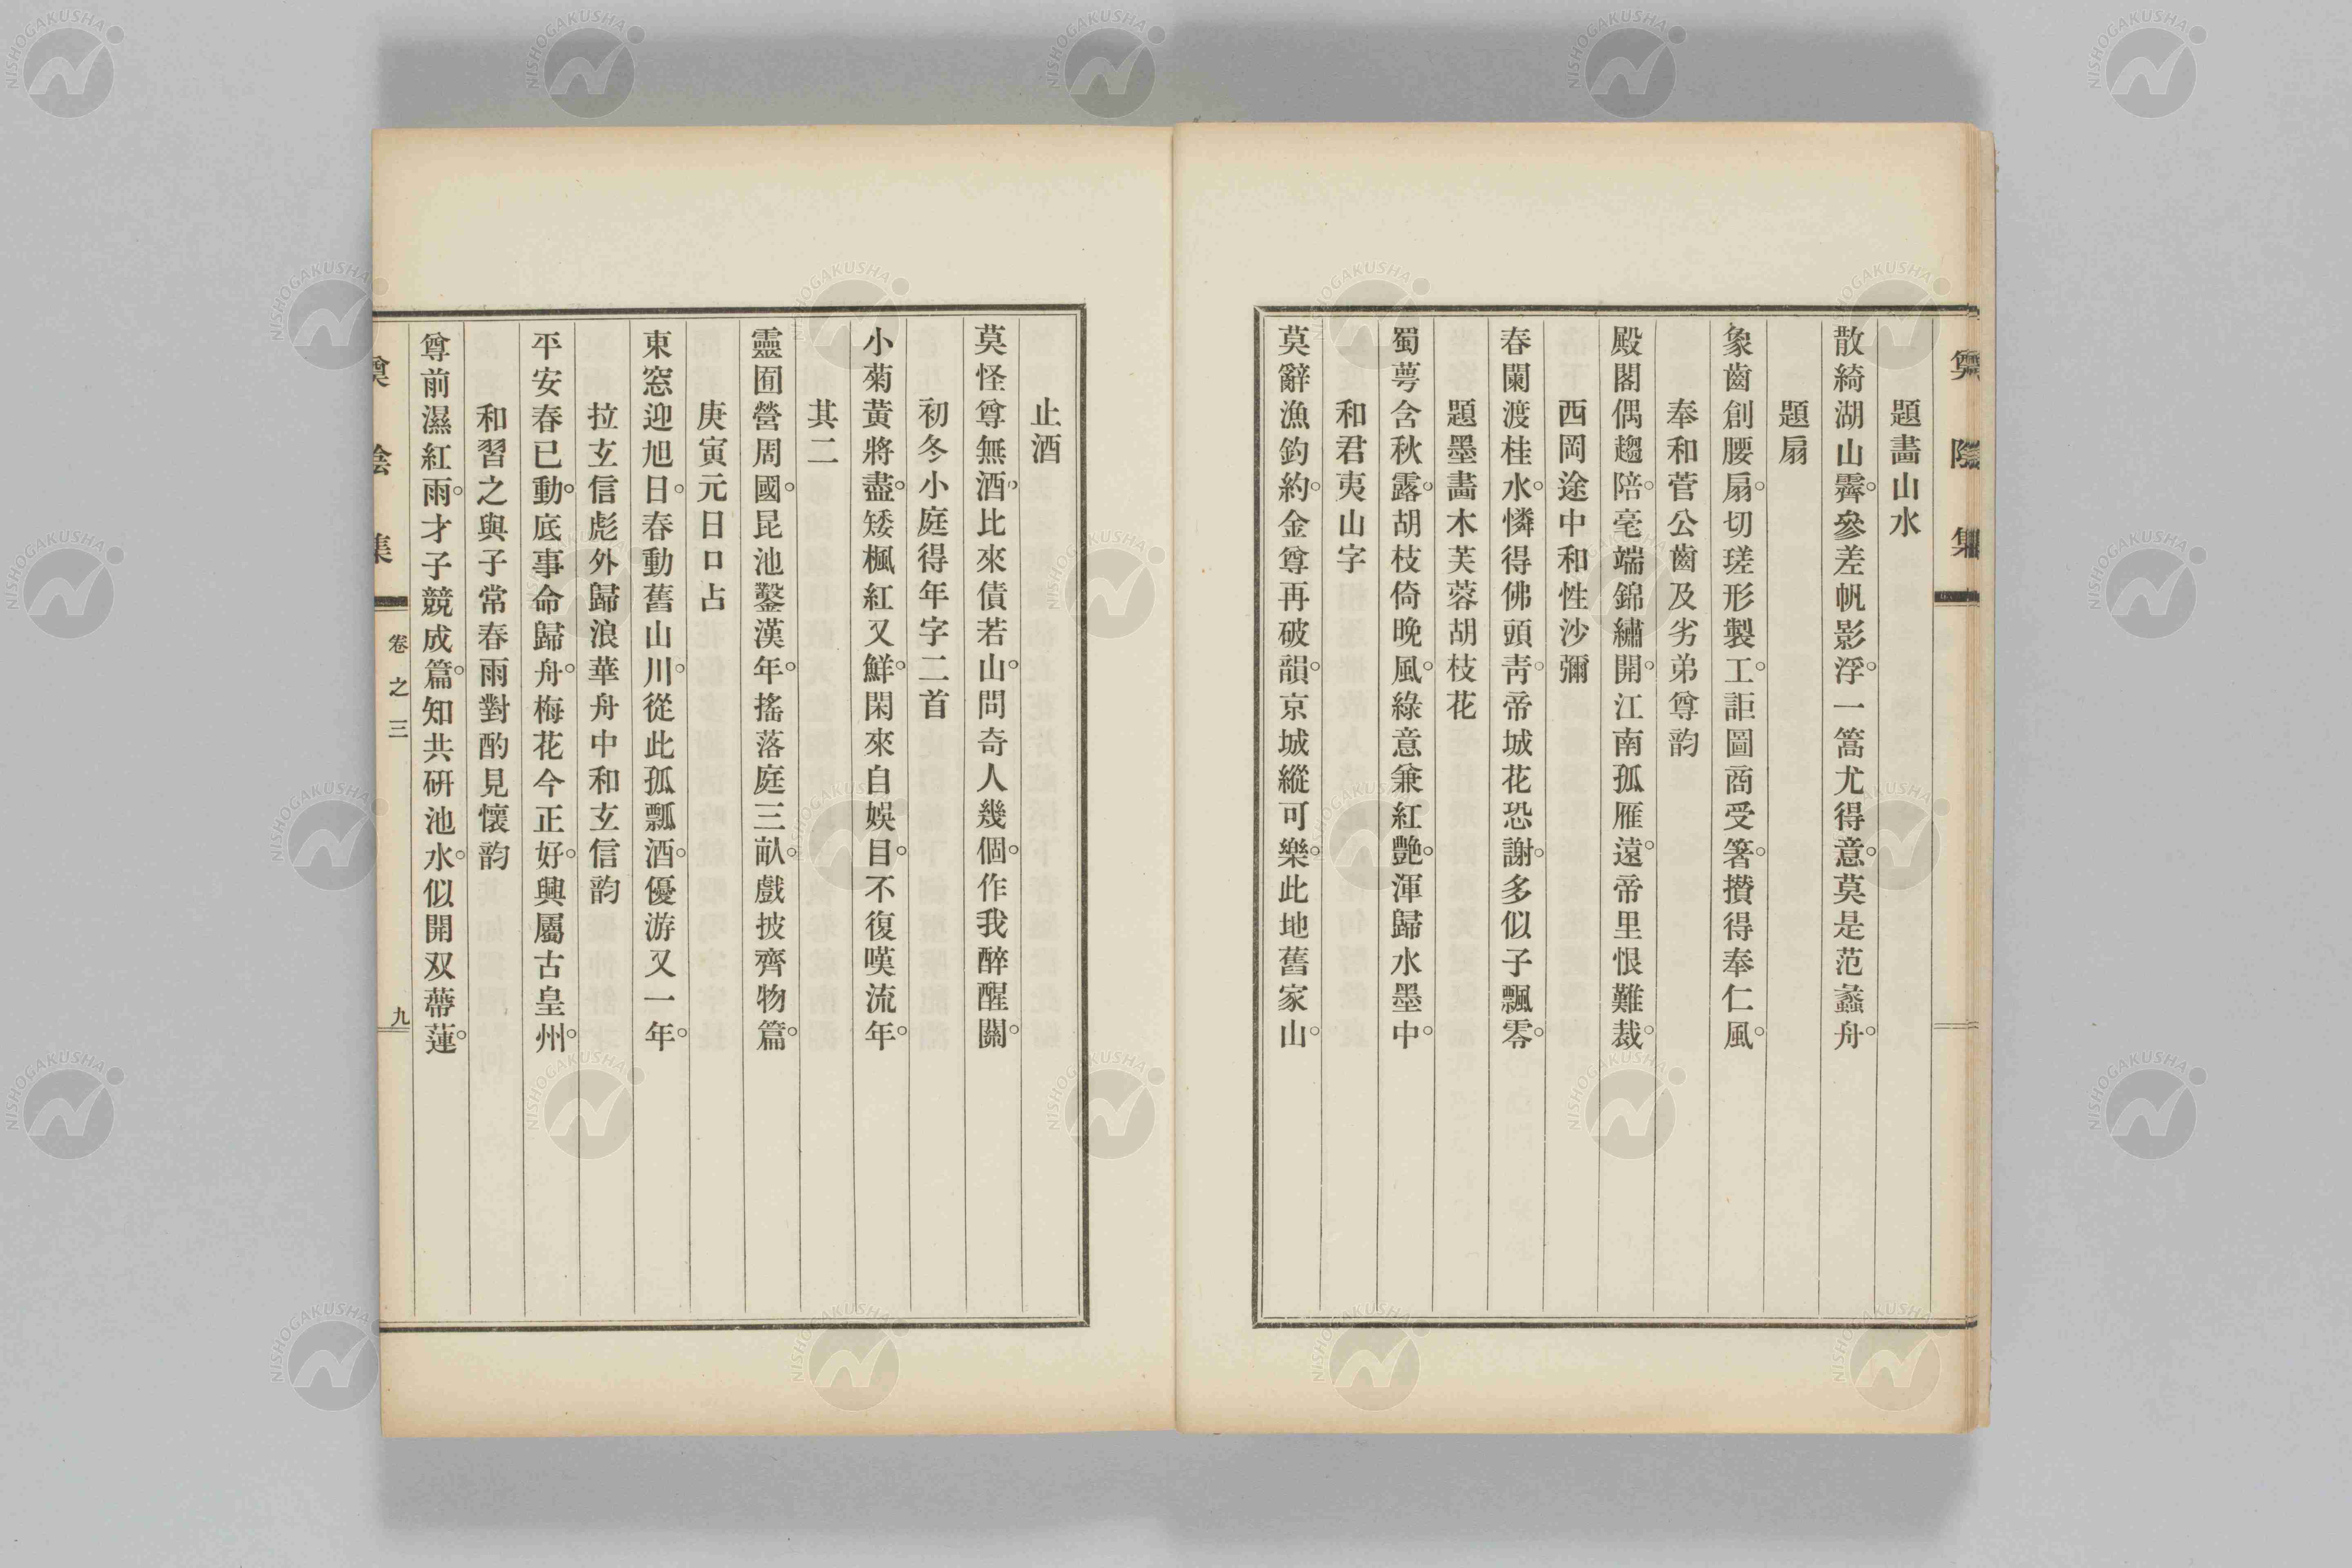 題畵山水
散綺湖山霽。參差帆影浮。一篙尤得意。莫是范蠡舟。
題扇
象齒創腰扇。切瑳形製工。詎圖商受箸。攅得奉仁風。
奉和菅公齒及劣弟尊韵
殿閣偶趨陪。毫端錦繡開。江南孤雁遠。帝里恨難裁。
西岡途中和性沙彌
春闌渡桂水。憐得佛頭靑。帝城花恐謝。多似子飄零。
題墨畵木芙蓉胡枝花
蜀萼含秋露。胡枝倚晚風。綠意兼紅艶。渾歸水墨中。
和君夷山字
莫辭漁釣約。金尊再破韻。京城縱可樂。此地舊家山。
止酒
莫怪尊無酒。比來債若山。問奇人幾個。作我醉醒關。
初冬小庭得年字二首
小菊黃將盡。矮楓紅又鮮。閑來自娛目。不復嘆流年。
其二
靈囿營周國。昆池鑿漢年。搖落庭三畝。戲披齊物篇。
庚寅元日口占
東窓迎旭日。春動舊山川。從此孤瓢酒。優游又一年。
拉玄信彪外歸浪華舟中和玄信韵
平安春已動。底事命歸舟。梅花今正好。興屬古皇州。
和習之與子常春雨對酌見懷韵
尊前濕紅雨。才子競成篇。知共硏池水。似開双蔕蓮。
卷之三
九
NISHOGAKUSHA